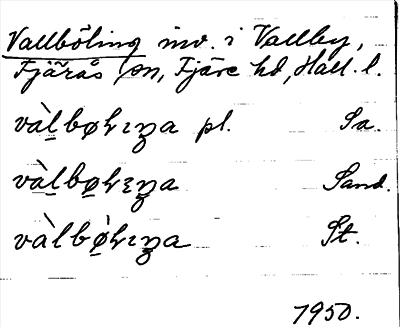 Vallböling inv. i Vallby,
Fjärås sn, Fjäre hd, Hall. l.
vàlbøɫɪŋa pl. Sa.
vàlbøɫɪŋa Sand.
vàlbø̀ɫɪŋa St.
1950.